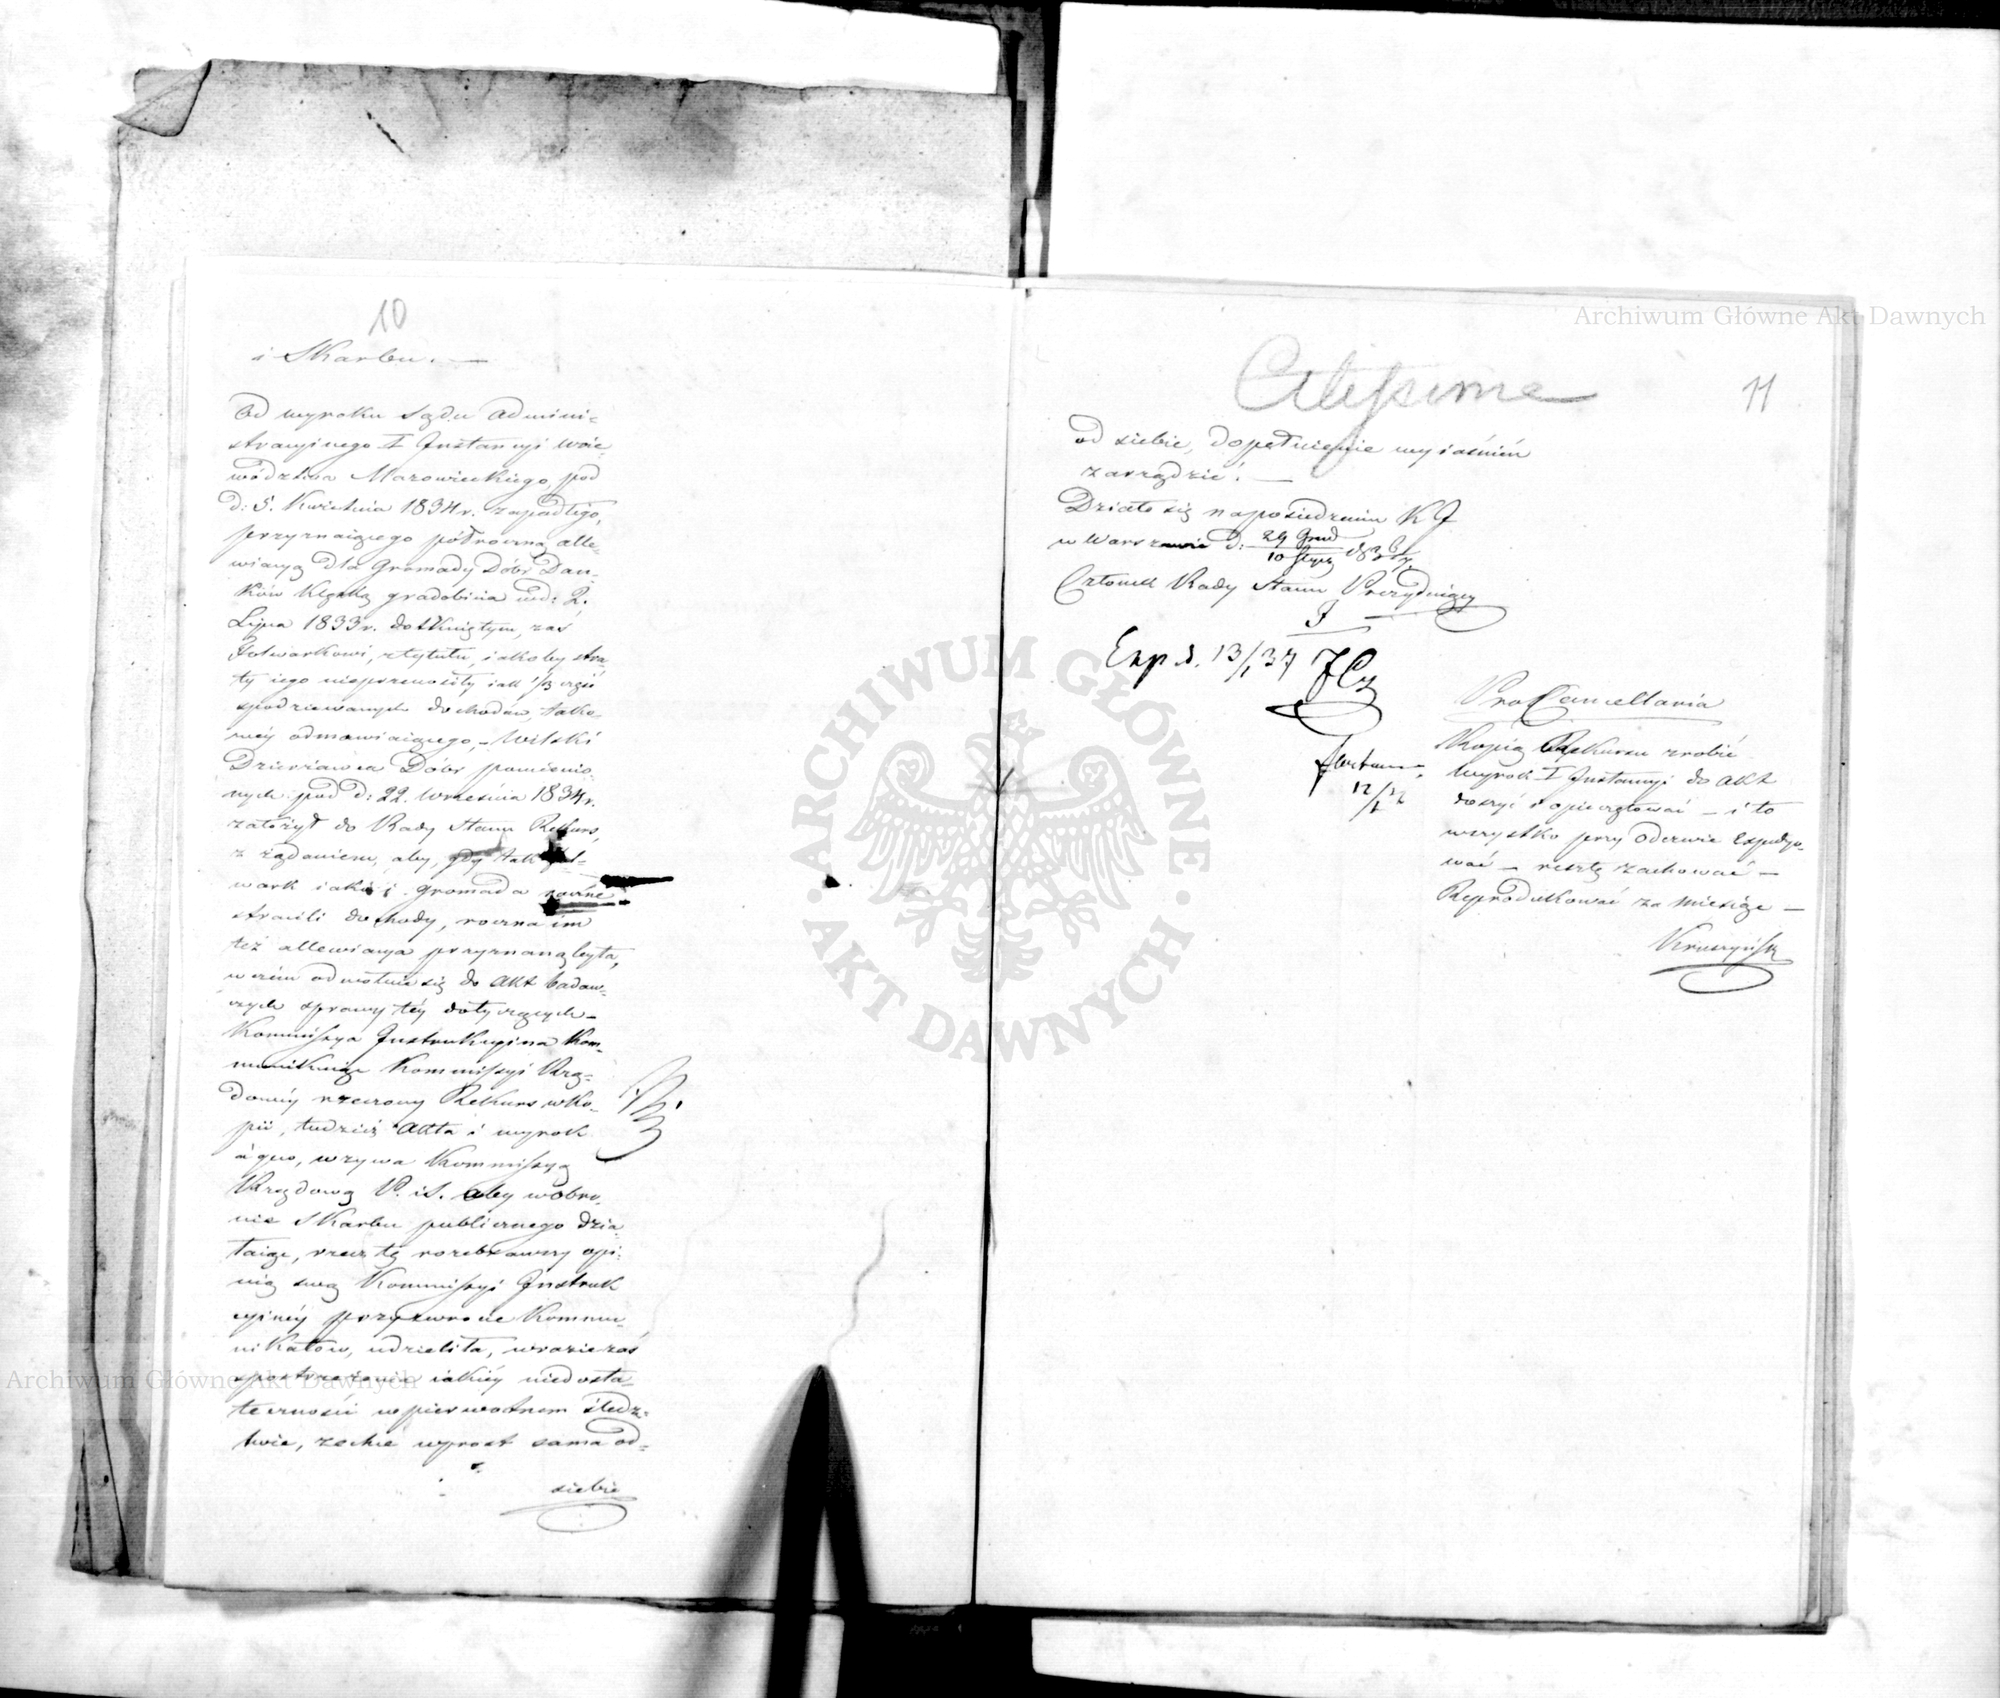 10
i Skarbu. —
Od wyroku Sądu Admini=
stracyjnego I Instancyi Woie=
wództwa Mazowieckiego, pod
d: 5. Kwietnia 1834 r. zapadłego,
przyznaiącego półroczną alle=
wiacyą dla Gromady Dóbr Dan=
ków klęską gradobicia w d: 2.
Lipca 1833 r. dotkniętym, zaś
Folwarkowi, z tytułu, iakoby stra=
ty iego nieprzenosiły iak 1/3 część
spodziewanych dochodów, tako=
wéy odmawiaiącego, – Wilski
Dzierżawca Dóbr pomienio=
nych pod d: 22. Września 1834 r.
założył do Rady Stanu Rekurs,
z żądaniem, aby, gdy tak Fol=
wark iako i gromada równe
stracili dochody, roczna im
też allewiacya przyznaną była,
w czém odwołuie się do Akt badaw=
czych sprawy téy dotyczących –
Kommissya Instrukcyina kom=
munikuiąc Kommissyi Rzą=
dowéy rzeczony Rekurs w ko=
pii, tudzież Akta i wyrok
à quo, wzywa Kommissyą
Rządową P. i S. aby w obro=
nie Skarbu publicznego dzia=
łaiąc, rzecz tę rozebrawszy opi=
nią swą Kommissyi Instruk
cyinéy przy zwrocie kommu=
nikatów, udzieliła, w razie zaś
spostrzeżenia iakiéy niedosta=
teczności w pierwotnem śledz=
twie, zechce wprost sama od=
siebie
Citissime
11
od siebie, dopełnienie wyiaśnień
zarządzić. —
Działo się na posiedzeniu K I
w Warszawie d: 29 Grud / 10 Stycz 1836/7
Członek Rady Stanu Prezyduiący
Exp d. 13/1 37
12/1 37
Pro Cancellaria
Kopią Rekursu zrobić
Wyrok I Instancyi do Akt
doszyć i opieczętować – i to
wszystko przy odezwie Expedyo=
wać – resztę zachować –
Reprodukować za miesiąc –
Archiwum Główne Akt Dawnych
Archiwum Główne Akt Dawnych
ARCHIWUM GŁÓWNE · AKT DAWNYCH ·